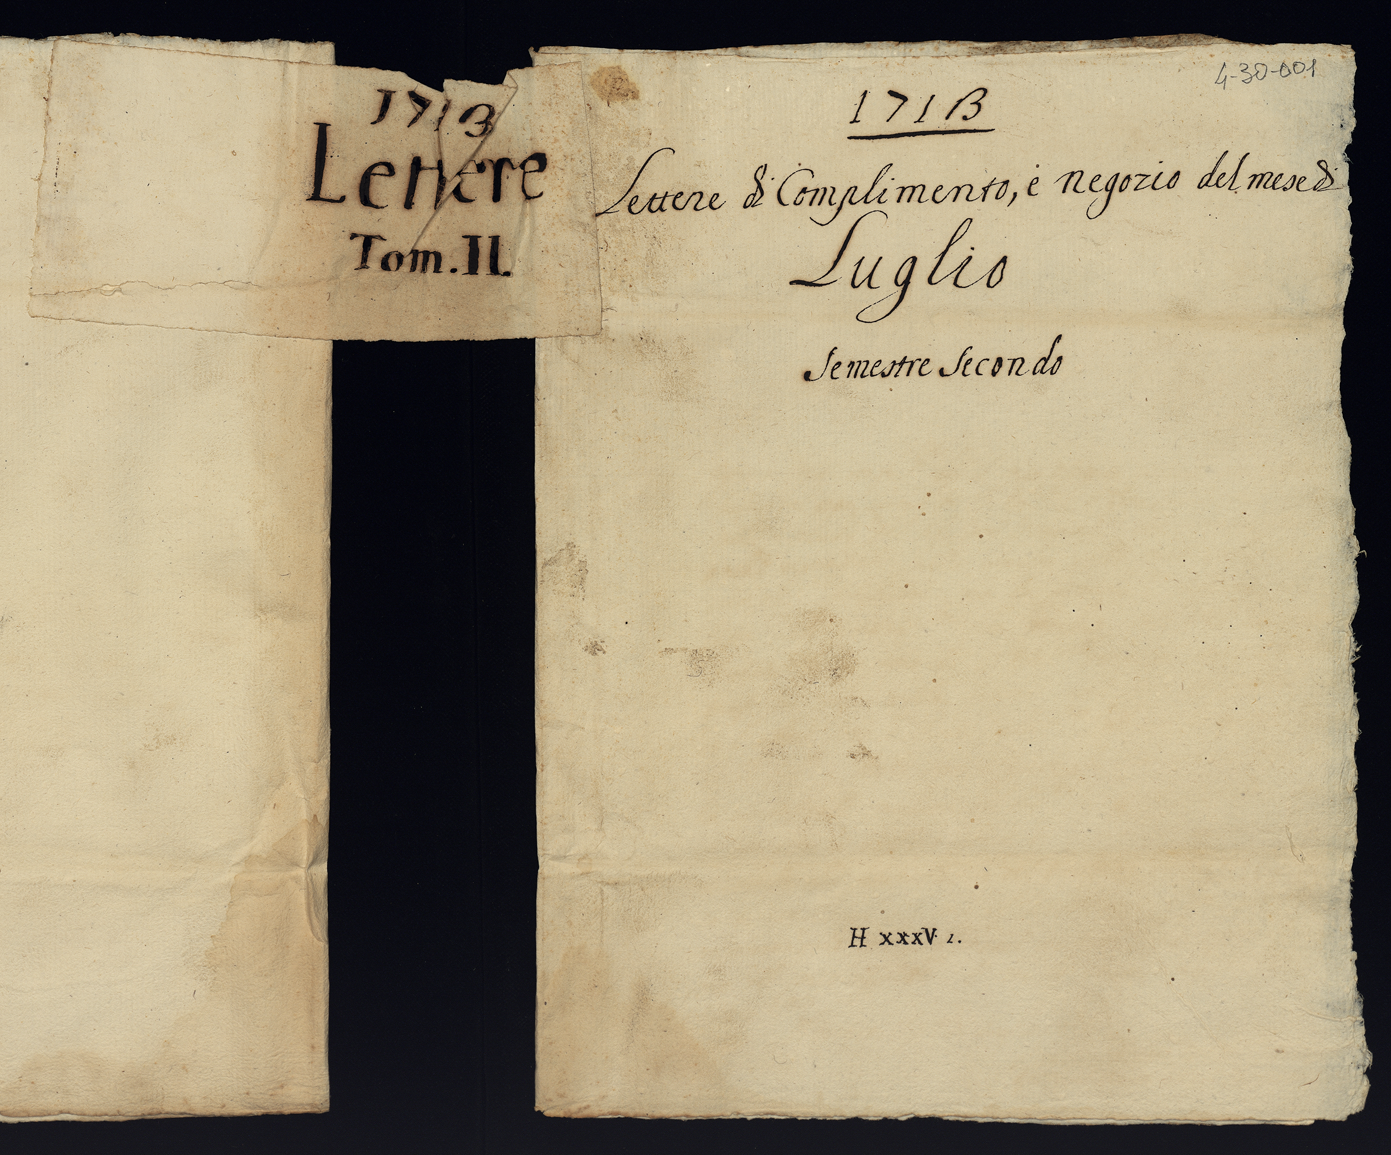 1713
Lettere
Tom. II.
4-30-001
1713
Lettere di Complimento, e negozio del mese di
Luglio
Semestre Secondo
H xxxV 2.